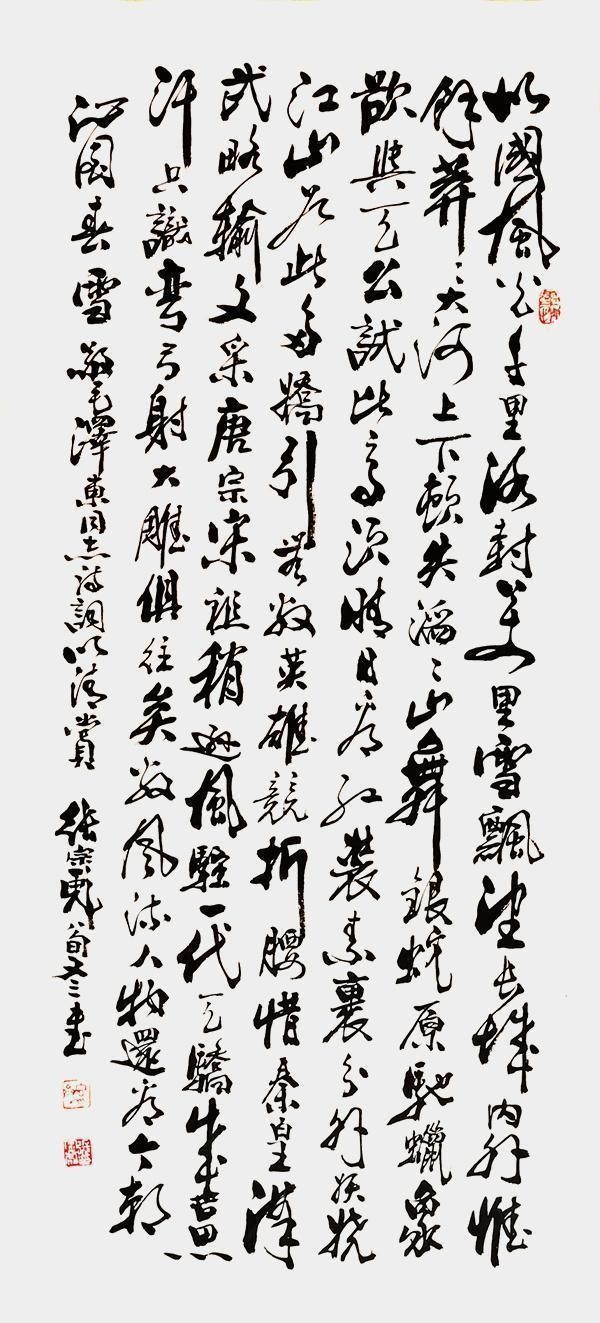 北國風光千里冰封萬里雪飄望長城内外惟
餘莽〻大河上下頓失滔〻山舞銀蛇原馳蠟象
欲與天公試比高須晴日看紅裝素裹分外妖嬈
江山如此多嬌引無數英雄競折腰惜秦皇漢
武略輸文采唐宗宋祖稍遜風騷一代天驕成吉思
汗只識彎弓射大雕俱往矣數風流人物還看今朝
沁園春雪 毛澤東同志詩詞以清賞 張宗 八旬又三書